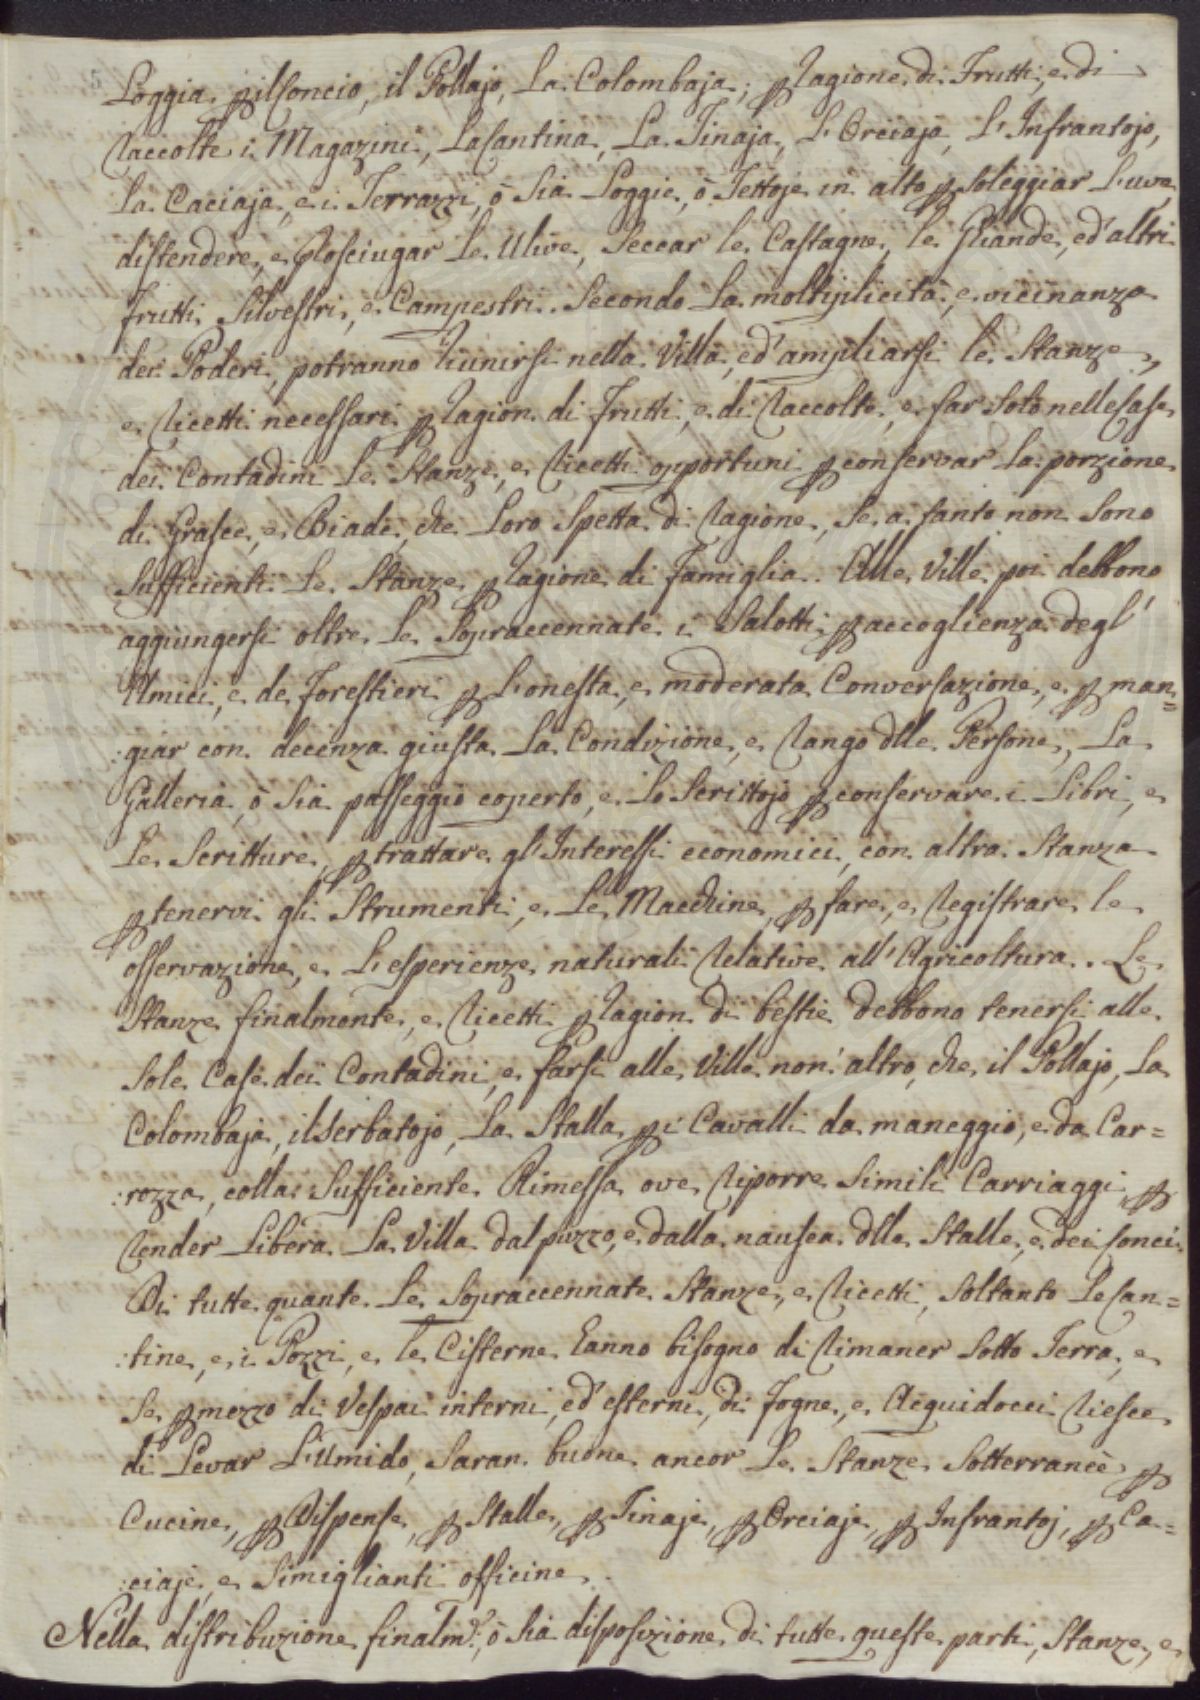 Loggia pilconcio, il Pollajo, La Colombaja; p ragione di Frutti, e di
raccolte i Magazini, La Cantina, La Tinaja, L'Orciaja, L'Infrantojo,
La Caciaja, e i Terrazzi, ò sia Loggie, ò Tettoje in alto p soleggiar L'uve
distendere, e prosciugar Le Ulive, seccar le Castagne, le Ghiande, ed'altri
frutti Silvestri, e Campestri. Secondo La moltiplicità, e vicinanza
dei Poderi, potranno riunirsi nella Villa, ed'ampliarsi le Stanze,
e ricetti necessari p ragion di frutti, e di raccolte, e far solo nelle Case
dei Contadini Le Stanze, e ricetti opportuni p conservar La porzione
di Grasce, e Biade, che Loro Spetta di ragione, Se a tanto non Sono
Sufficienti Le Stanze p ragione di famiglia. Alle Ville poi debbono
aggiungersi oltre Le Sopraccennate i Salotti p accoglienza degl'
Amici, e de Forestieri p L'onesta, e moderata Conversazione, e p man=
:giar con decenza giusta La Condizione, e rango dlle Persone, La
Galleria, ò sia passeggio coperto, e Lo Scrittojo p conservare i Libri, e
Le Scritture, p trattare gl'Interessi economici, con altra Stanza
p tenervi gli Strumenti, e Le Macchine, p fare, e registrare le
osservazione, e L'esperienze naturali relative all'Agricoltura. Le
Stanze finalmente, e ricetti p ragion di bestie debbono tenersi alle
Sole Case dei Contadini, e farsi alle Ville non'altro, che il Pollajo, La
Colombaja, il Serbatojo, La Stalla p i Cavalli da maneggio, e da Car=
:rozza, colla Sufficiente Rimessa ove riporre Simili Carriaggi p
render Libera La Villa dal puzzo, e dalla nausea dlle Stalle, e dei Conci.
Di tutte quante Le Sopraccennate Stanze, e ricetti, Soltanto Le Can=
:tine, e i Pozzi, e le Cisterne hanno bisogno di rimaner Sotto Terra, e
Se p mezzo di Vespai interni, ed'esterni, di Fogne, e Acquidocci riesce
di Levar L'Umido, Saran buone ancor Le Stanze Sotterranee p
Cucine, p Dispense, p Stalle, p Tinaje, p Orciaje, p Infrantoj, p Ca=
:ciaje, e Simiglianti officine.
Nella distribuzione finalmᵉ, ò sia disposizione di tutte queste parti, Stanze, e